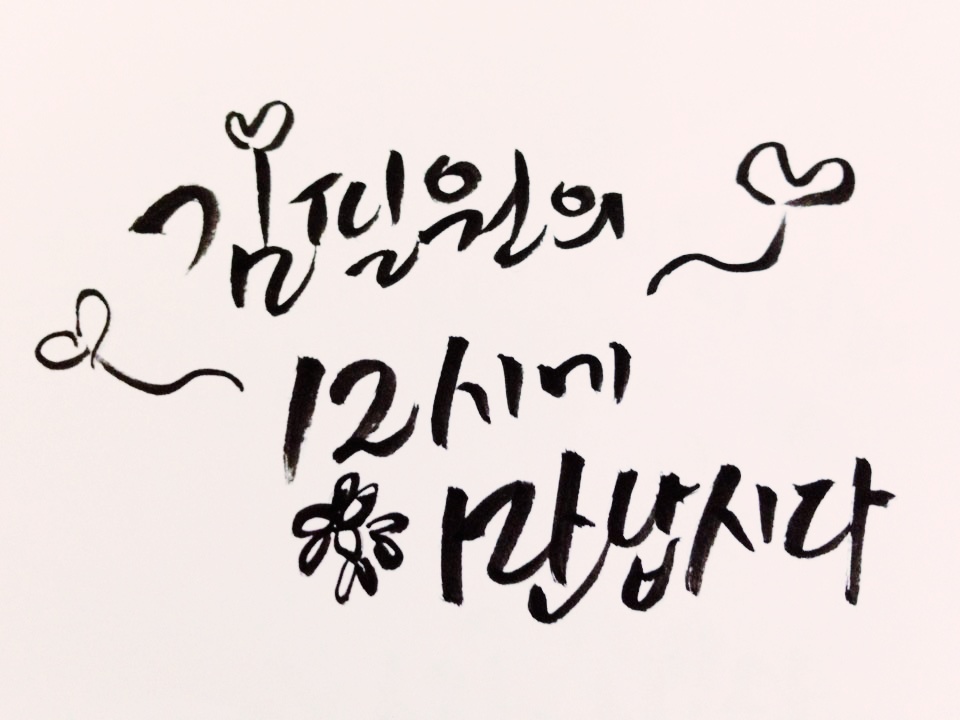 김필원의
12시에
만납시다